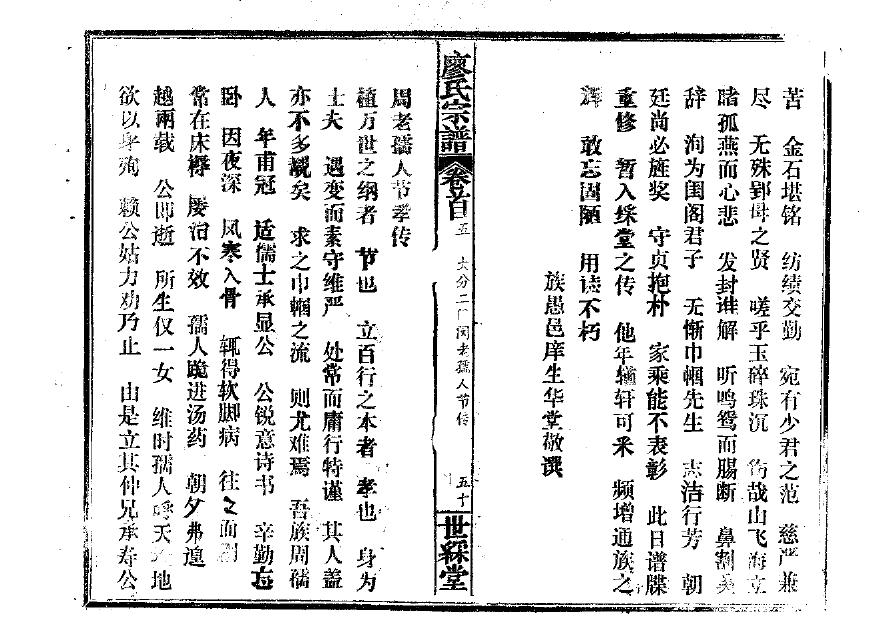 苦　金石堪铭　纺绩交勤　宛有少君之范　慈严兼
尽　无殊郢母之贤　嗟乎玉碎珠沉　衔哉山飞海立
睹孤燕而心悲　发封谁解　听鸣鸳而腸断　鼻割美
辞　洵为闺阁君子　无惭巾帼先生　志洁行芳　朝
廷尚必旌奖　守贞抱朴　家乘能不表彰　此日谱牒
重修　暂入綵堂之传　他年輶轩可采　频增通族之
辉　敢忘固陋　用读不朽
族愚邑庠生华堂敬撰
廖氏宗譜
卷首
五　大分二门周老孺人节传
五十
世綵堂
周老孺人节孝传
植万世之纲者　节也　立百行之本者　孝也　身为
士夫　遇变而素守维严　处常而庸行特谨　其人盖
亦不多觏矣　求之巾帼之流　则尤难焉　吾族周孺
人　年甫冠　适儒士承显公　公锐意诗书　辛勤
卧　因夜深　风寒入骨　辄得软脚病　往之而
常在床褥　屡治不效　孺人跪进汤药　朝夕弗遑
越兩载　公即逝　所生仅一女　维时孺人呼天地
欲以身殉　赖公姑力劝乃止　由是立其仲兄承寿公